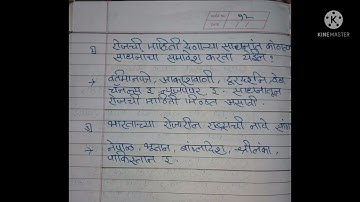 १२
२) रोजची माहिती देणाऱ्या साधनांमध्ये कोणत्या
साधनाचा समावेश करता येईल ?
→ वर्तमानपत्रे, आकाशवाणी, दूरदर्शन, वेब
चॅनल्स इ. न्यूजपेपर इ. साधनातून
रोजची माहिती मिळत असते.
३) भारताच्या शेजारील राष्ट्रांची नावे सांगा
→ नेपाळ, भूतान, बांगलादेश, श्रीलंका,
पाकिस्तान इ.
KINEMASTER